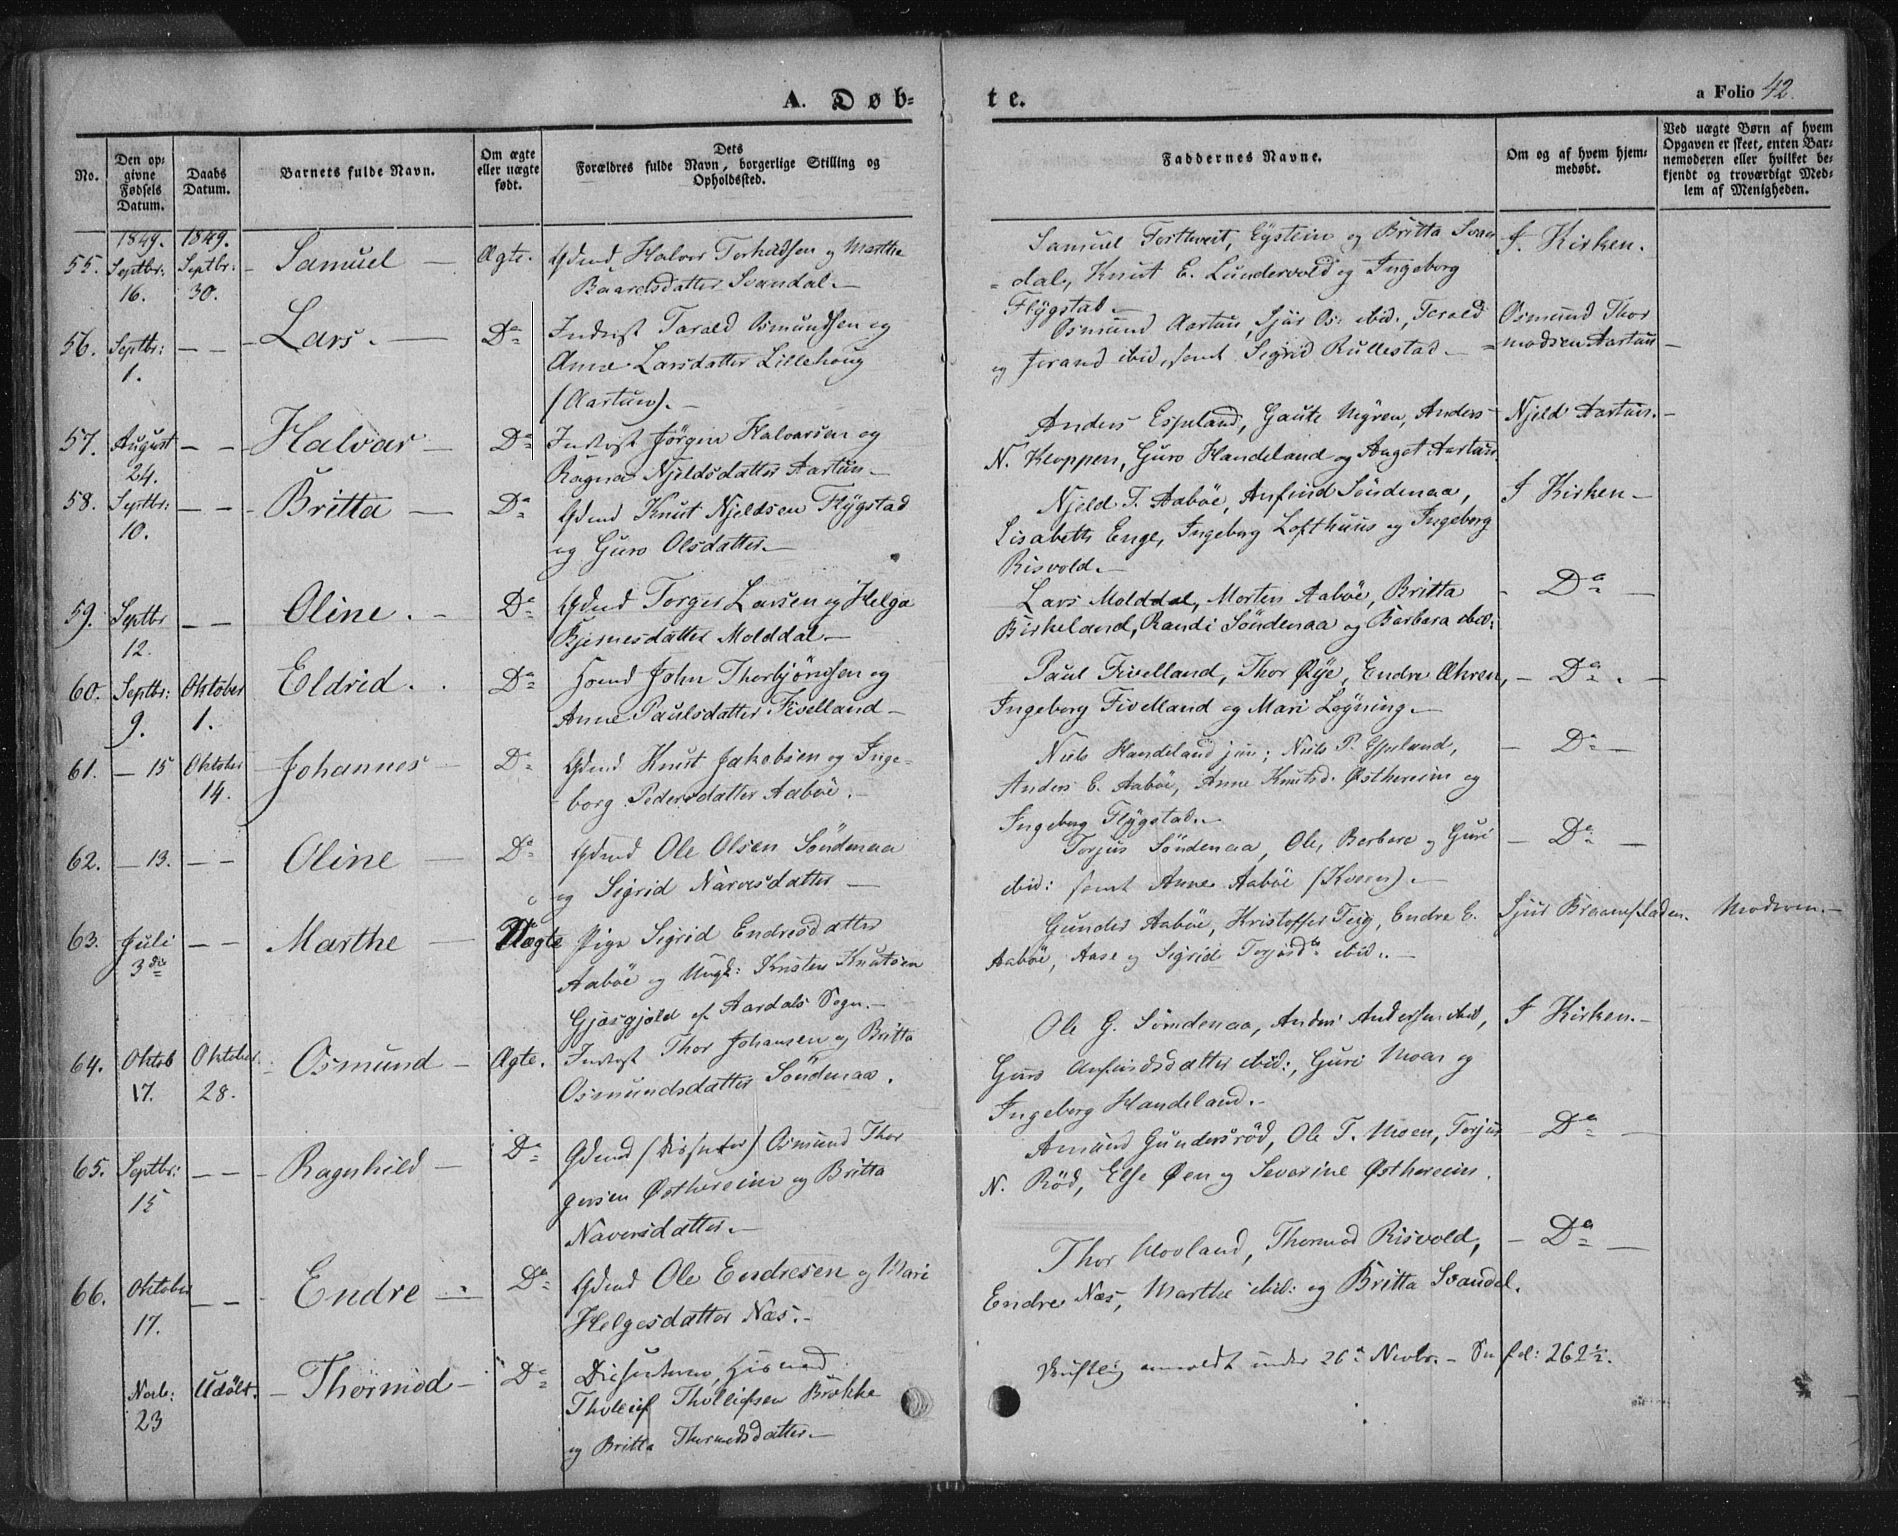 A. Døb-
te.
a Folio 42.
No.
Den op-
givne
Fødsels
Datum.
Daabs
Datum.
Barnets fulde Navn.
Om ægte
eller uægte
født.
Dets
Forældres fulde Navn, borgerlige Stilling og
Opholdssted.
Faddernes Navne.
Om og af hvem hjem-
medøbt.
Ved uægte Børn af hvem
Opgaven er skeet, enten Bar-
nemoderen eller hvilket be-
kjendt og troværdigt Med-
lem af Menigheden.
1849. 1849.
55. Septbr: 16. Septbr: 30. Samuel Ægte. Gdmd Halvor Torkildsen og Marthe
Baardsdatter Svandal.
Samuel Forthveit, Eystein og Britta Svan
dal, Knut E. Lundervold og Ingeborg
Flÿgstad.
I Kirken.
56. Septbr: 1. Lars. Do Inderst Tarald Osmundsen og
Anne Larsdatter Lillehoug
(Aartun).
Osmund Aartun, Sjur Os: ibid., Torald
og ibid, samt Sigrid Rullestad.
Osmund Thor
modsen Aartun
57. August 24. Halvar Do Inderst Jörgen Halvarsen og
Ragna Njeldsdatter Aartun.
Anders Espeland, Gaute Mÿren, Anders
N. Kloppen, Guro Handeland og Aaget Aartun
Njeld Aartun.
58. Septbr: 10. Britta Do Gdmd Knut Njeldsen Flÿgstad
og Guro Olsdatter.
Njeld T. Aabõe, Anfind Söndenaa,
Lisabeth Enge, Ingeborg Lofthuus og Ingeborg
Risvold.
I Kirken
59. Septbr 12. Oline. Do Gdmd Torger Larsen og Helga
Bjernesdatter Molddal
Lars Molddal, Morten Aabõe, Britta
Birkeland, Randi Söndenaa og Barbara ibid:
Do
60. Septbr: 9. Oktober 1. Eldrid. Do Hsmd John Thorbjörnsen og
Anne Paulsdatter Fivelland
Paul Fivelland, Thor Øÿe, Endre Øhren,
Ingeborg Fivelland og Mari Løÿning.
Do
61. 15 Oktober 14. Johannes Do Gdmd Knut Jakobsen og Inge-
borg Pedersdatter Aabõe.
Niels Handeland jun; Niels P. Espeland,
Anders E. Aabõe, Anne Knutsd. Østhereim og
Ingeborg Flÿgstad.
Do
62. 13. Oline Do Gdmd Ole Olsen Söndenaa
og Sigrid Narvesdatter
Torjus Söndenaa, Ole, Barbara og Guri
ibid: samt Anne Aabõe (Kvern).
Do
63. Juli 3die Marthe Uægte Pige Sigrid Endresdatter
Aabõe og Ungk: Kristen Knutsen
Gjosgjold af Aardals Sogn.
Gunder Aabõe, Kristoffer Teig, Endre E.
Aabõe, Aase og Sigrid Torjusdtr ibid.
Sjur Braamstaden.
Moderen.
64. Oktob 17. Oktober 28. Osmund Ægte. Inderst Thor Johansen og Britta
Osmundsdatter Söndenaa.
Ole G. Söndenaa, Anders Andersen ibid,
Guro Anfindsdatter ibid:, Guri Moen og
Ingeborg Handeland.
I Kirken.
65. Septbr: 15 Ragnhild Do Gdmd (Dissenter) Osmund Thor
gersen Østhereim og Britta
Naversdatter.
Amund Gundersröd, Ole T. Moen, Torjus
N. Röd, Else Øen og Severine Østhereim.
Do
66. Oktober 17. Endre Do Gdmd Ole Endresen og Mari
Helgesdatter Næs.
Thor Hovland, Thormod Risvold,
Endre Næs, Marthe ibid: og Britta Svandal.
Do
Novb: 23 Udöbt. Thormod Do Dissenteren, Husmd
Tholeif Tholleifsen Brekke
og Britta Thormodsdatter.
anmeldt under 26de Novbr. Se fol: 262½.